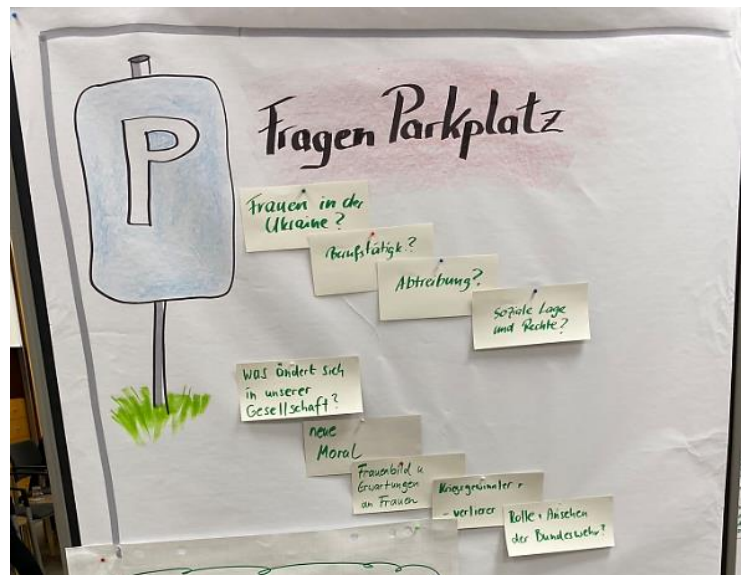 P
Fragen Parkplatz
Frauen in der
Ukraine?
Berufstätigk.?
Abtreibung?
Soziale Lage
und Rechte?
Was ändert sich
in unserer
Gesellschaft?
neue
Moral
Frauenbild u
Erwartungen
an Frauen
Kriegsgewinnler +
- verlierer
Rolle + Ansehen
der Bundeswehr?